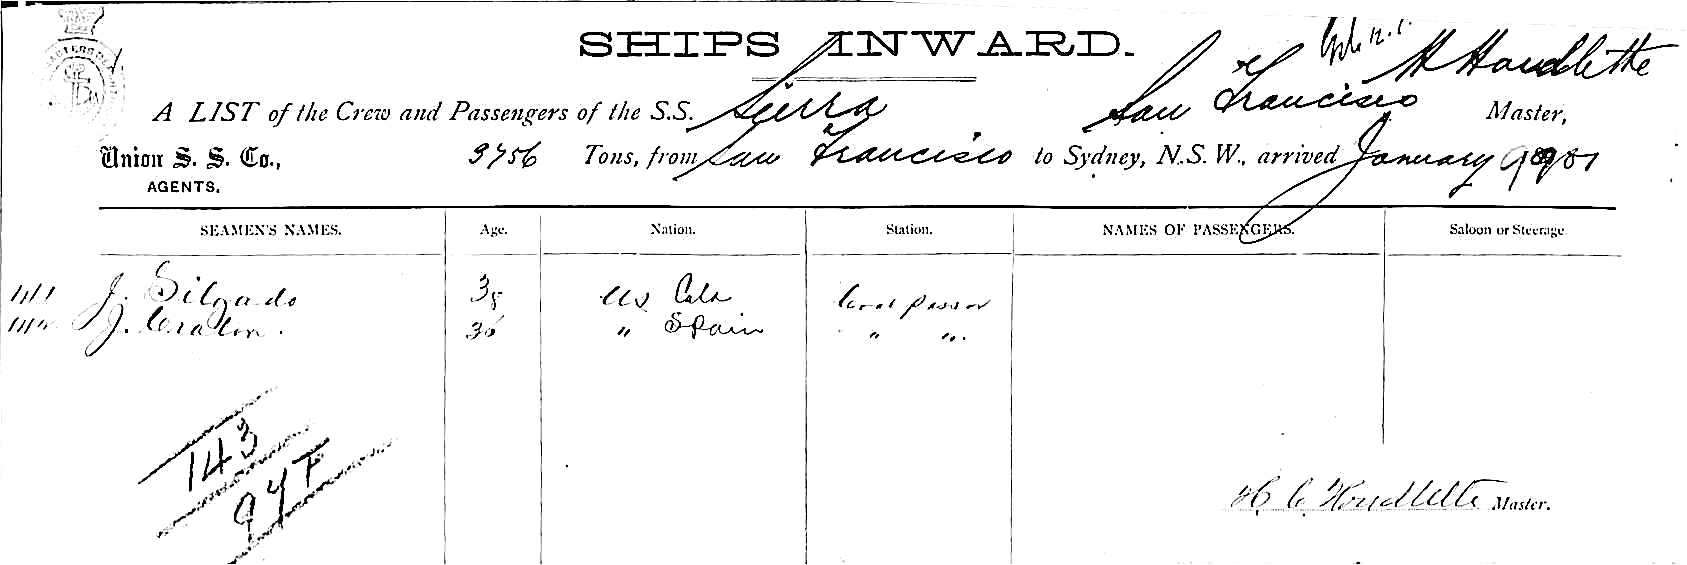 SHIPS INWARD.
H Houdlette
A LIST of the Crew and Passengers of the S.S. Sierra San Francisco Master,
Union S. S. Co., 3756 Tons, from San Francisco to Sydney, N.S.W., arrived January 1901
AGENTS.
SEAMEN'S NAMES. Age. Nation. Station. NAMES OF PASSENGERS. Saloon or Steerage
141 J. Silgado 38 US Cala Coal passer
142 J. 36 " Spain " ".
143
94F
H. C. Houdlette Master.